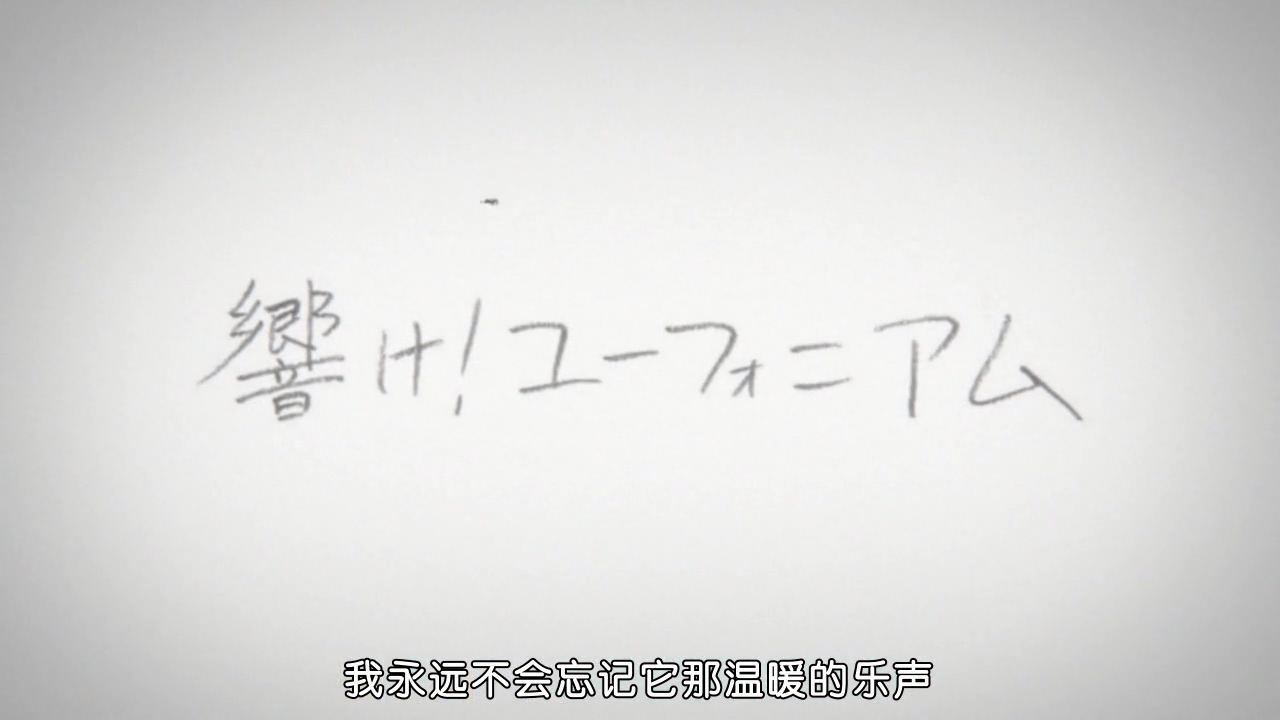 響け!ユーフォニアム
我永远不会忘记它那温暖的乐声